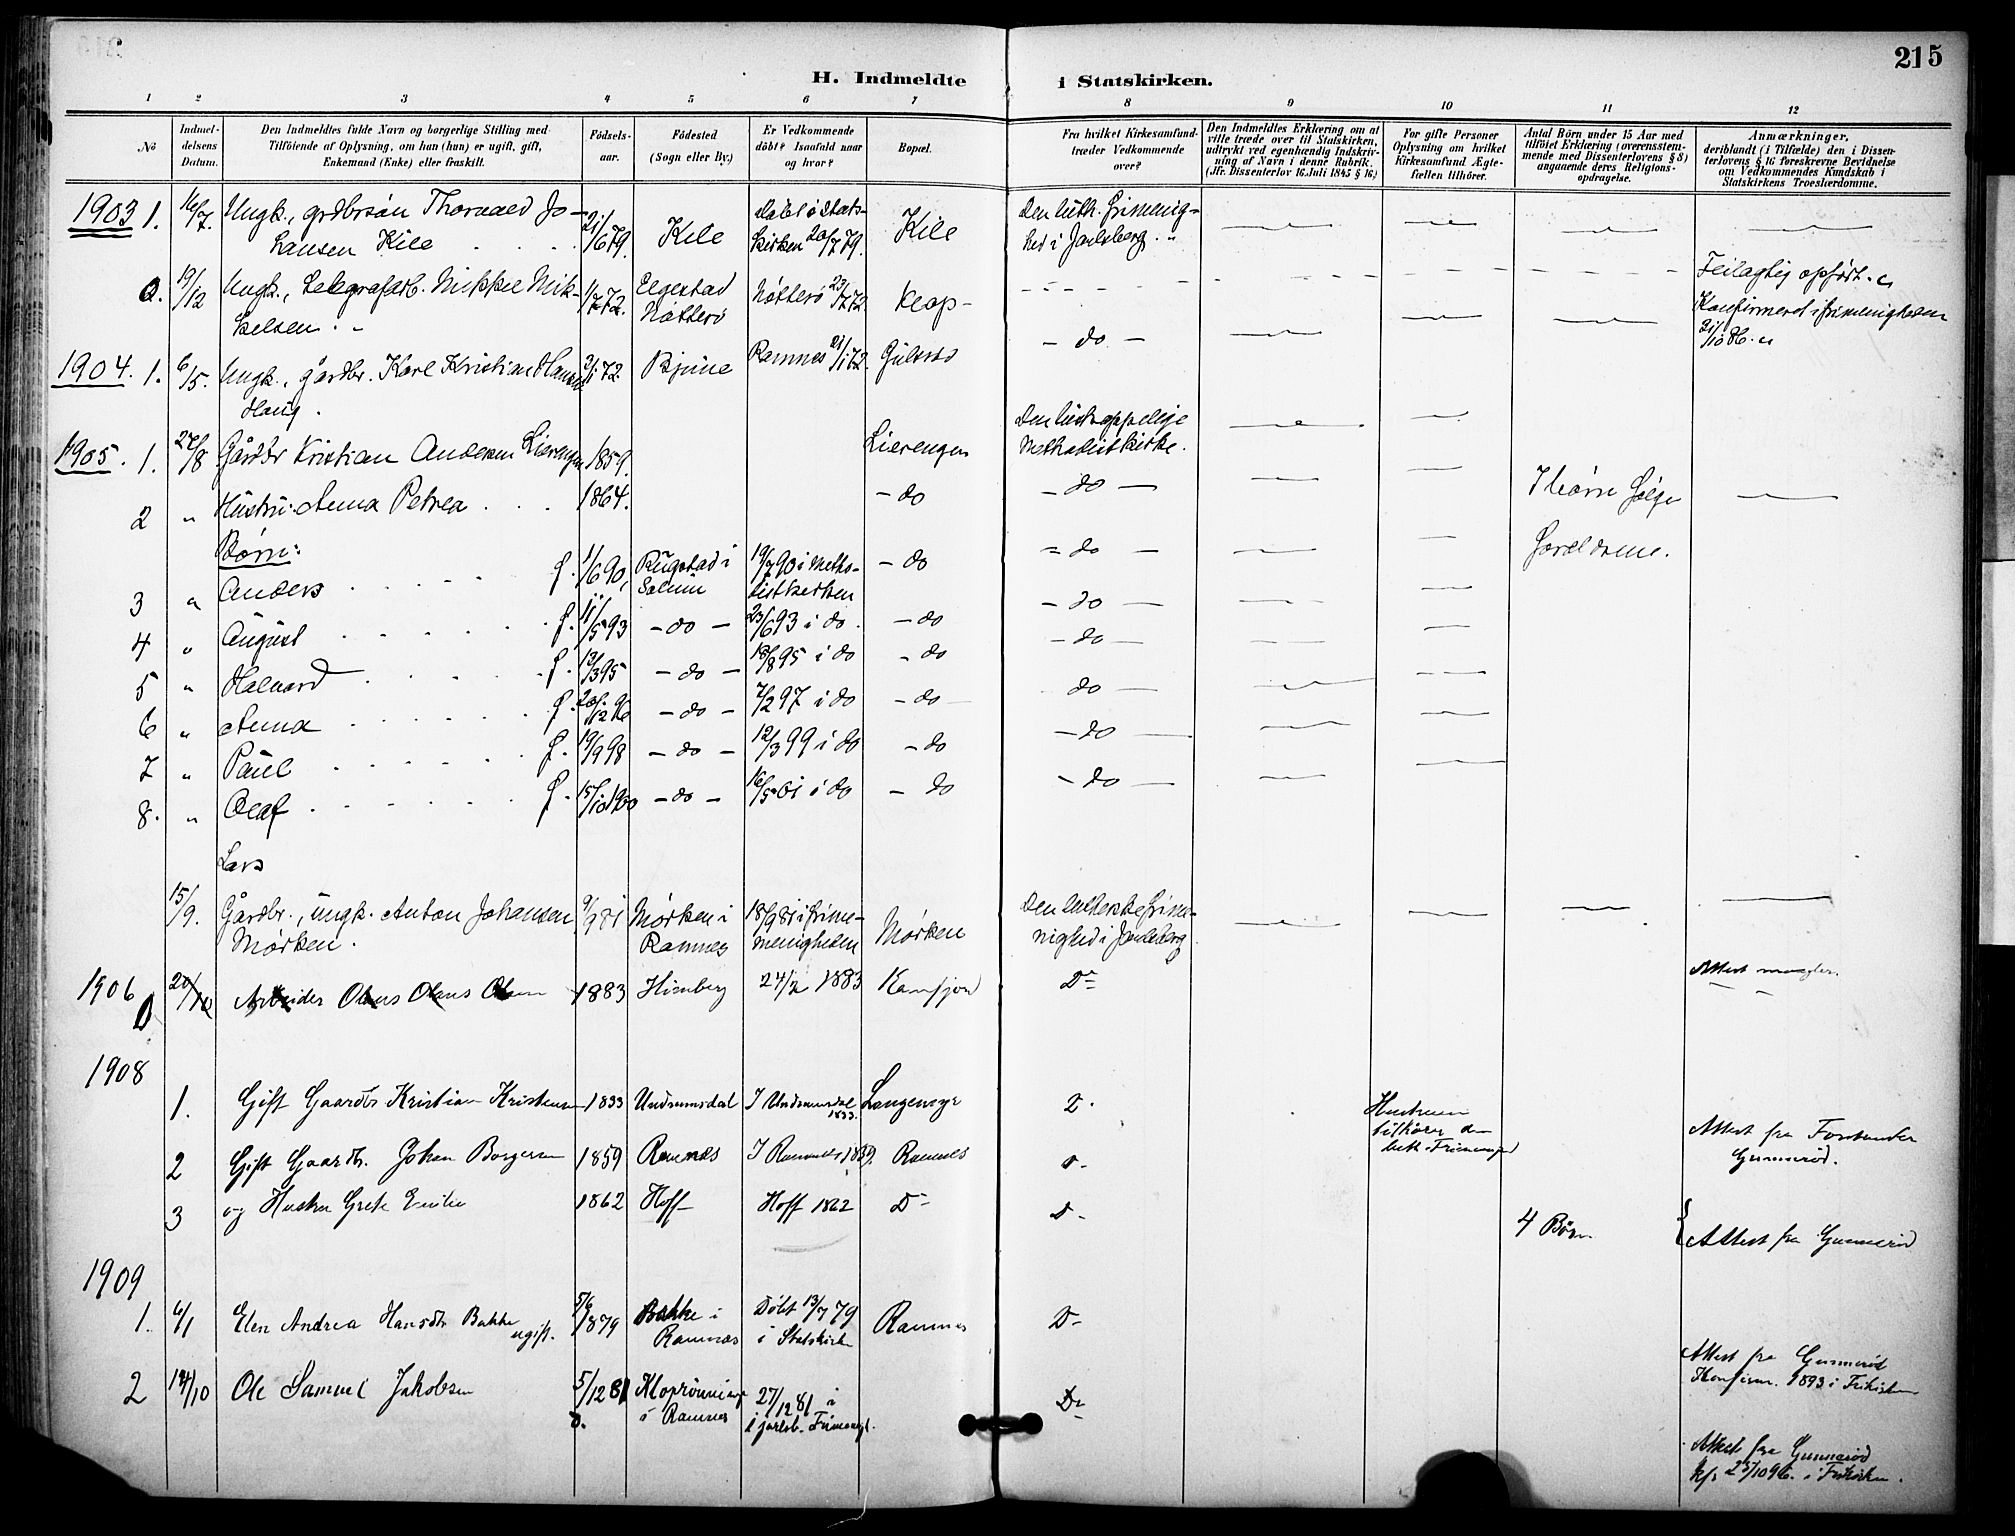 215
H. Indmeldte i Statskirken.
1 2 3 4 5 6 7 8 9 10 11 12
No
Indmel-
delsens
Datum.
Den Indmeldtes fulde Navn og borgerlige Stilling med
Tilföiende af Oplysning, om han (hun) er ugift, gift,
Enkemand (Enke) eller fraskilt.
Fødsels-
aar.
Födested
(Sogn eller By.)
Er Vedkommende
döbt? Isaafald naar
og hvor?
Bopæl.
Fra hvilket Kirkesamfund
træder Vedkommende
over?
Den Indmeldtes Erklæring om at
ville træde over til Statskirken,
udtrykt ved egenhændig Indskriv-
ning af Navn i denne Rubrik.
(Jfr. Dissenterlov 16 Juli 1845 § 16)
For gifte Personer
Oplysning om hvilket
Kirkesamfund Ægte-
fællen tilhörer.
Antal Börn under 15 Aar med
tilföiet Erklæring (overensstem-
mende med Dissenterlovens § 8)
angaaende deres Religions-
opdragelse.
Anmærkninger,
deriblandt (i Tilfælde) den i Dissen-
terlovens § 16 foreskrevne Bevidnelse
om Vedkommendes Kundskab i
Statskirkens Troeslærdomme.
1903 1. 16/7. Ungk., grdbrsön Thorvald Jo- 21/6 79. Kile Döbt i Stats- Kile Den luth. frimenig-
hansen Kile kirken 20/7 79. hed i Jarlsberg
2. 19/12 Ungk., Telegrafarb. Mikkel Mik- 1/7 72. Nötterö 23/7 72. Klop- Feilagtig opfört.
kelsen Nötterö Konfirmeret i frimenigheden
21/10 86.
1904. 1. 6/5. Ungk., gårdbr. Karl Kristian Hansen 2/1 72. Bjune Ramnes 21/1 72. Gulsrød - do -
Haug.
1905. 1. 27/8 Gårdbr Kristian Andersen Lierengen 1859. Lierengen Den biskoppelige
Methodistkirke.
2 " Hustru: Anna Petrea 1864. - do - do - 7 børn følge
forældrene.
Børn:
3 " Anders f. 1/6 90, Rugstad i 19/7 90 i Metho- - do - do -
distkirken
4 " August f. 11/5 93 - do - 23/6 93 i do. - do - do -
5 " Halvard f. 13/3 95 - do - 18/8 95 i do - do - do -
6 " Anna f. 20/12 96 - do - 7/2 97 i do - do do -
7 " Paul f. 19/9 98 - do - 12/3 99 i do - do - do -
8. " Olaf f. 15/10 1900 - do - 16/5 01 i do - do - do -
Lars
15/9. Gårdbr., ungk. Anton Johansen 9/9 81 Mørken i 18/9 81 i frime- Mørken Den lutherske frime-
Mørken. Ramnes menigheden nighed i Jarlsberg
1906 20/10 Arbeider Olaus Olsen 1883 Himberg 24/2 1883 Kamfjord Do Attest mangler.
1908
1. Gift Gaardbr Kristian Kristensen 1833 Undrumsdal I Undrumsdal Langemyr Hustruen
1833. tilhører den
luth. Frimenighed
Attest fra Forstander
Gunnerød.
2 Gift Gaardbr. Johan Borgersen 1859 Ramnes I Ramnes 1859. Ramnes
3 og Hustru Grete Emilie 1862 Hoff Hoff 1862 D- D- 4 Børn Attest fra Gunnerød
1909
1. 6/1 Elen Andrea Hansdtr Bakke 5/6 1879 Bakke i Døbt 13/7 79 Ramnes D-
ugift. Ramnes i Statskirken
Attest fra Gunnerød
Konfirm. 1893 i Frikirken
2 14/10 Ole Samuel Jakobsen 5/12 81 Kloprönningen 27/12 81 i D-
i Ramnes jarlsb. Frimenigh.
Attest fra Gunnerød
kf. 25/10 96. i Frikirken.